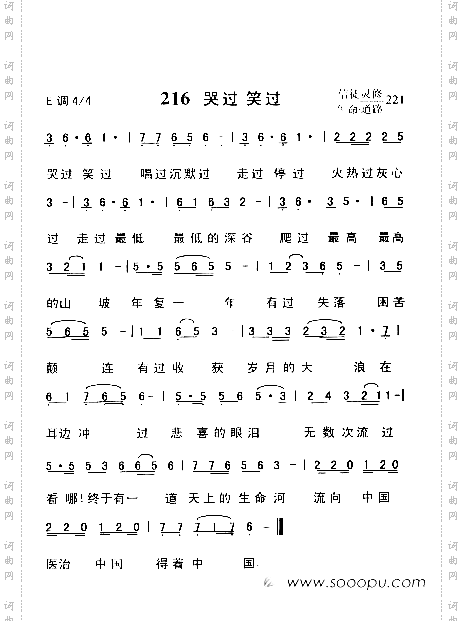 E 调 4/4
216 哭过 笑过
信徒灵修
生命·道路 221
3 6·6 1· | 7 7 6 5 6 - | 3 6·6 1· | 2 2 2 2 5
哭过 笑过 唱过沉默过 走过 停过 火热过灰心
3 - | 3 6·6 1· | 6 1 6 3 2 - | 3·5 3·5 | 6·5
过 走过 最低 最低的深谷 爬过 最高 最高
3 2 1 1 - | 5·5 5 6 5 5 - | 1 2 3 6 5 | 5·5
的山 坡 年复一 年 有过 失落 困苦
5 6 5 5 - | 1 1 6 5 3 | 3 3 3 2 3 2 1·7
颠 连 有过收 获 岁月的大 浪在
6 1 7 6 5 6 - | 5·5 5 6 5·3 | 2 4 3 2 1 1 -
耳边 冲 过 悲喜的眼泪 无数次流过
5·5 5 3 6 6 6 5 | 3·5 5 3 5 3 2 | 2 2 0 1 2 0
看哪!终于有一 道 天上的 生命河 流向 中国
2 2 0 1 2 0 | 7·7 7 7 1 7 6 -
医治 中国 得着中 国.
www.sooopu.com
词曲网
词曲网
词曲网
词曲网
词曲网
词曲网
词曲网
词曲网
词曲网
词曲网
词曲网
词曲网
词曲网
词曲网